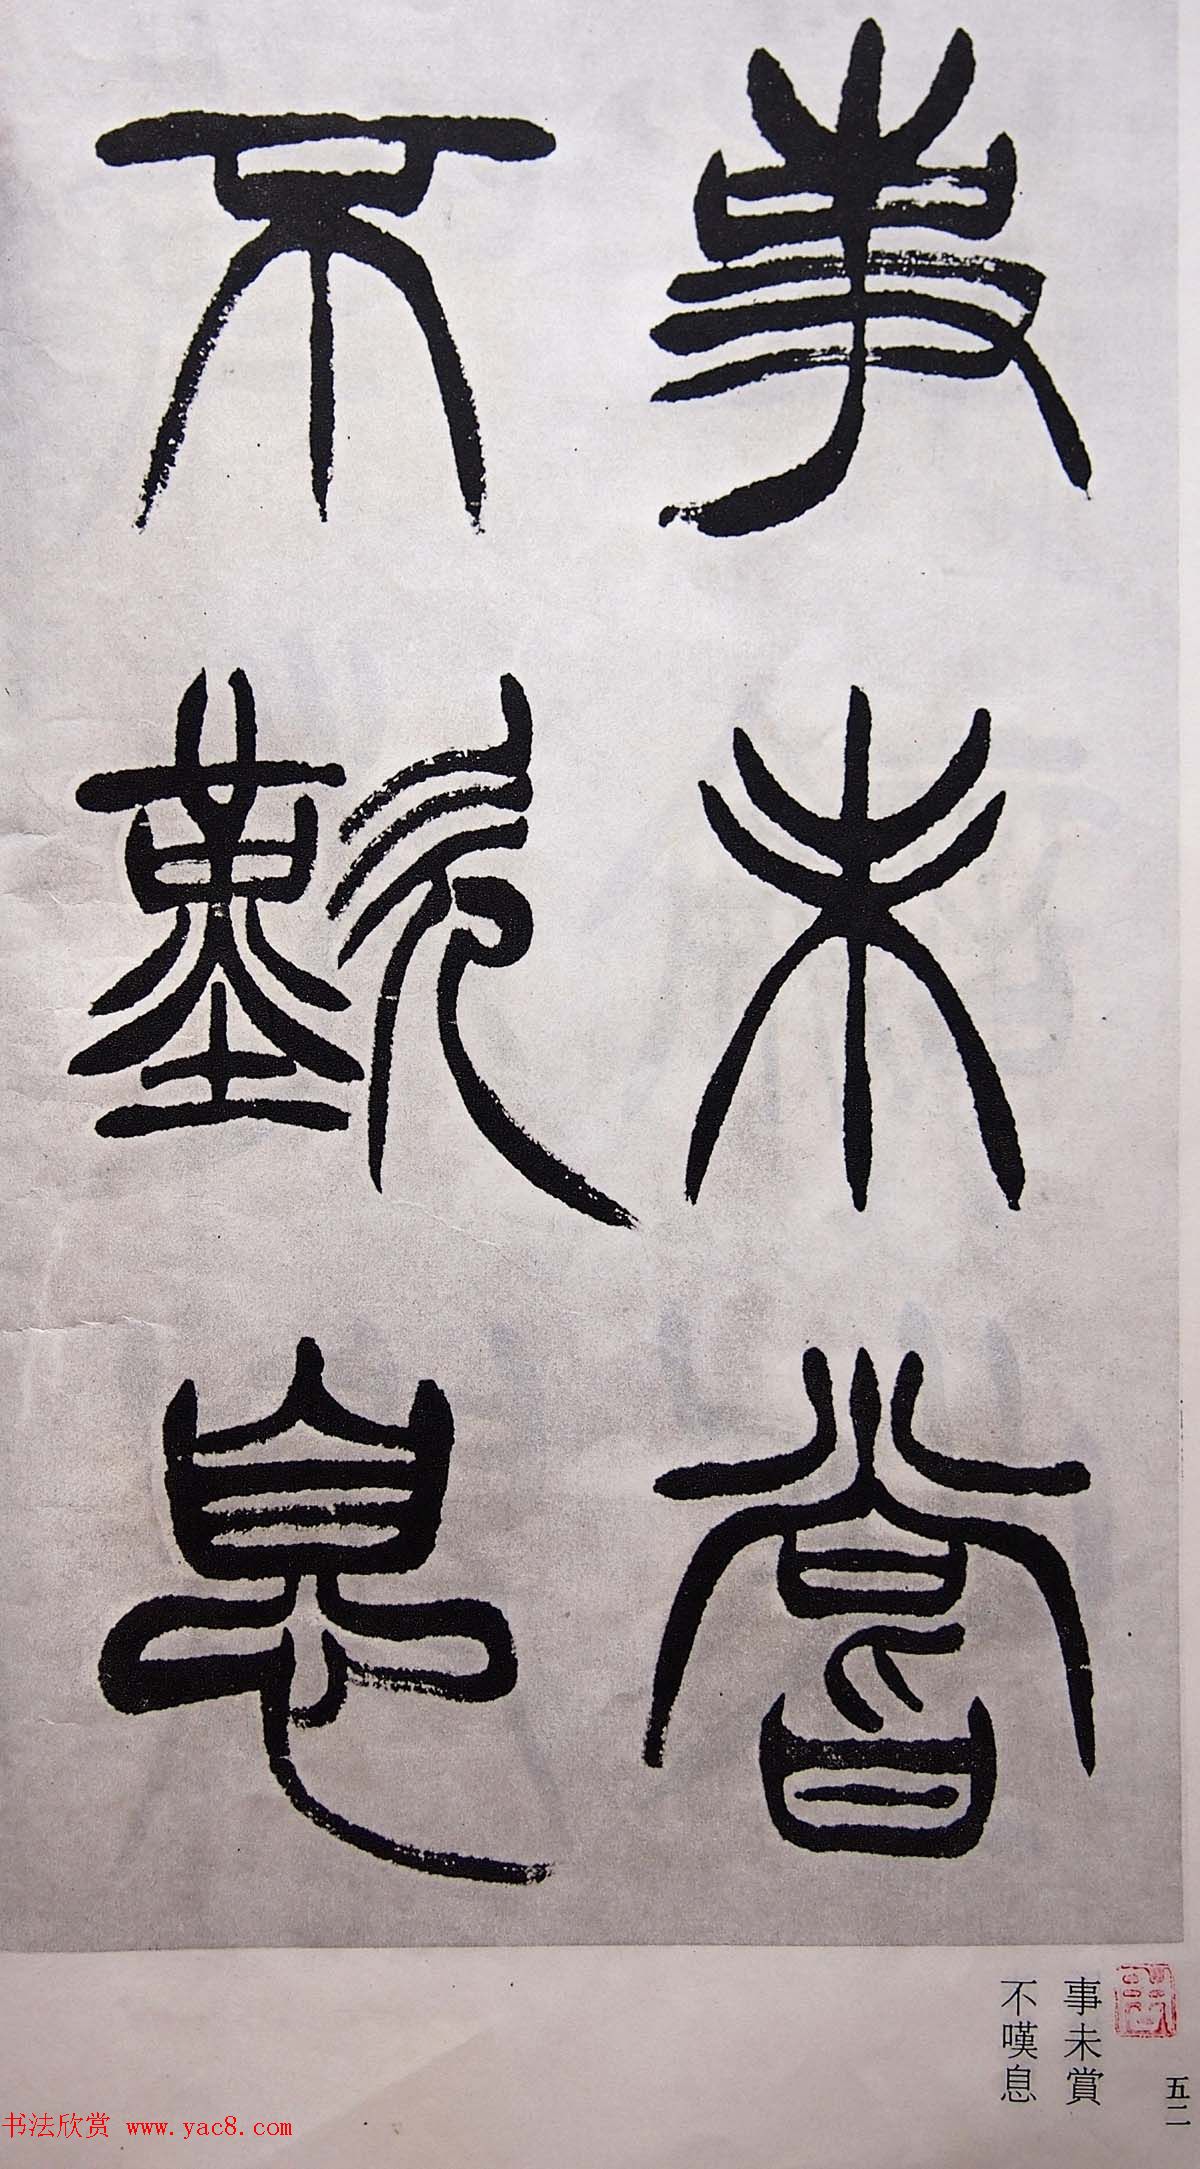 事未嘗
不歎息
事未賞
不嘆息
五二
书法欣赏 www.yac8.com